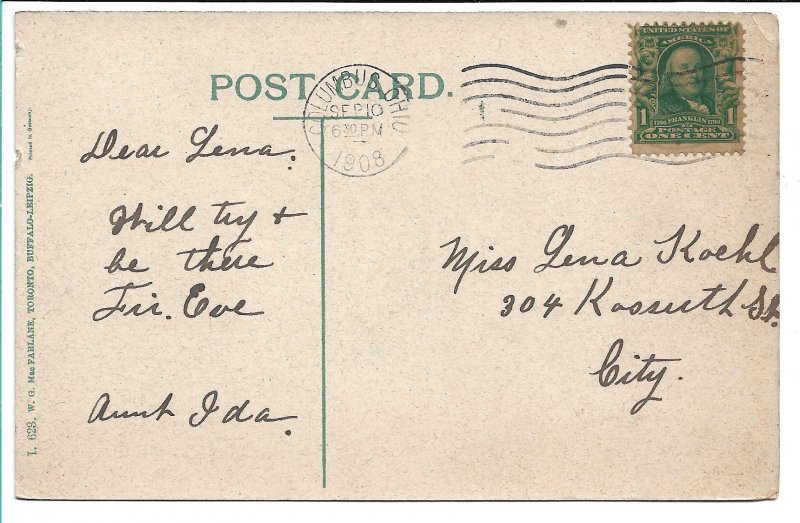 POST CARD.
COLUMBUS OHIO
SEP 10
6 30 PM
1908
UNITED STATES OF
AMERICA
1 1706 FRANKLIN 1790 1
POSTAGE
ONE CENT
Dear Lena,
Will try +
be there
Fir. Eve
Aunt Ida.
Miss Lena Koehl
304 Kossuth St.
City.
I. 623, W. G. MacFARLANE, TORONTO, BUFFALO-LEIPZIG. Printed in Germany.